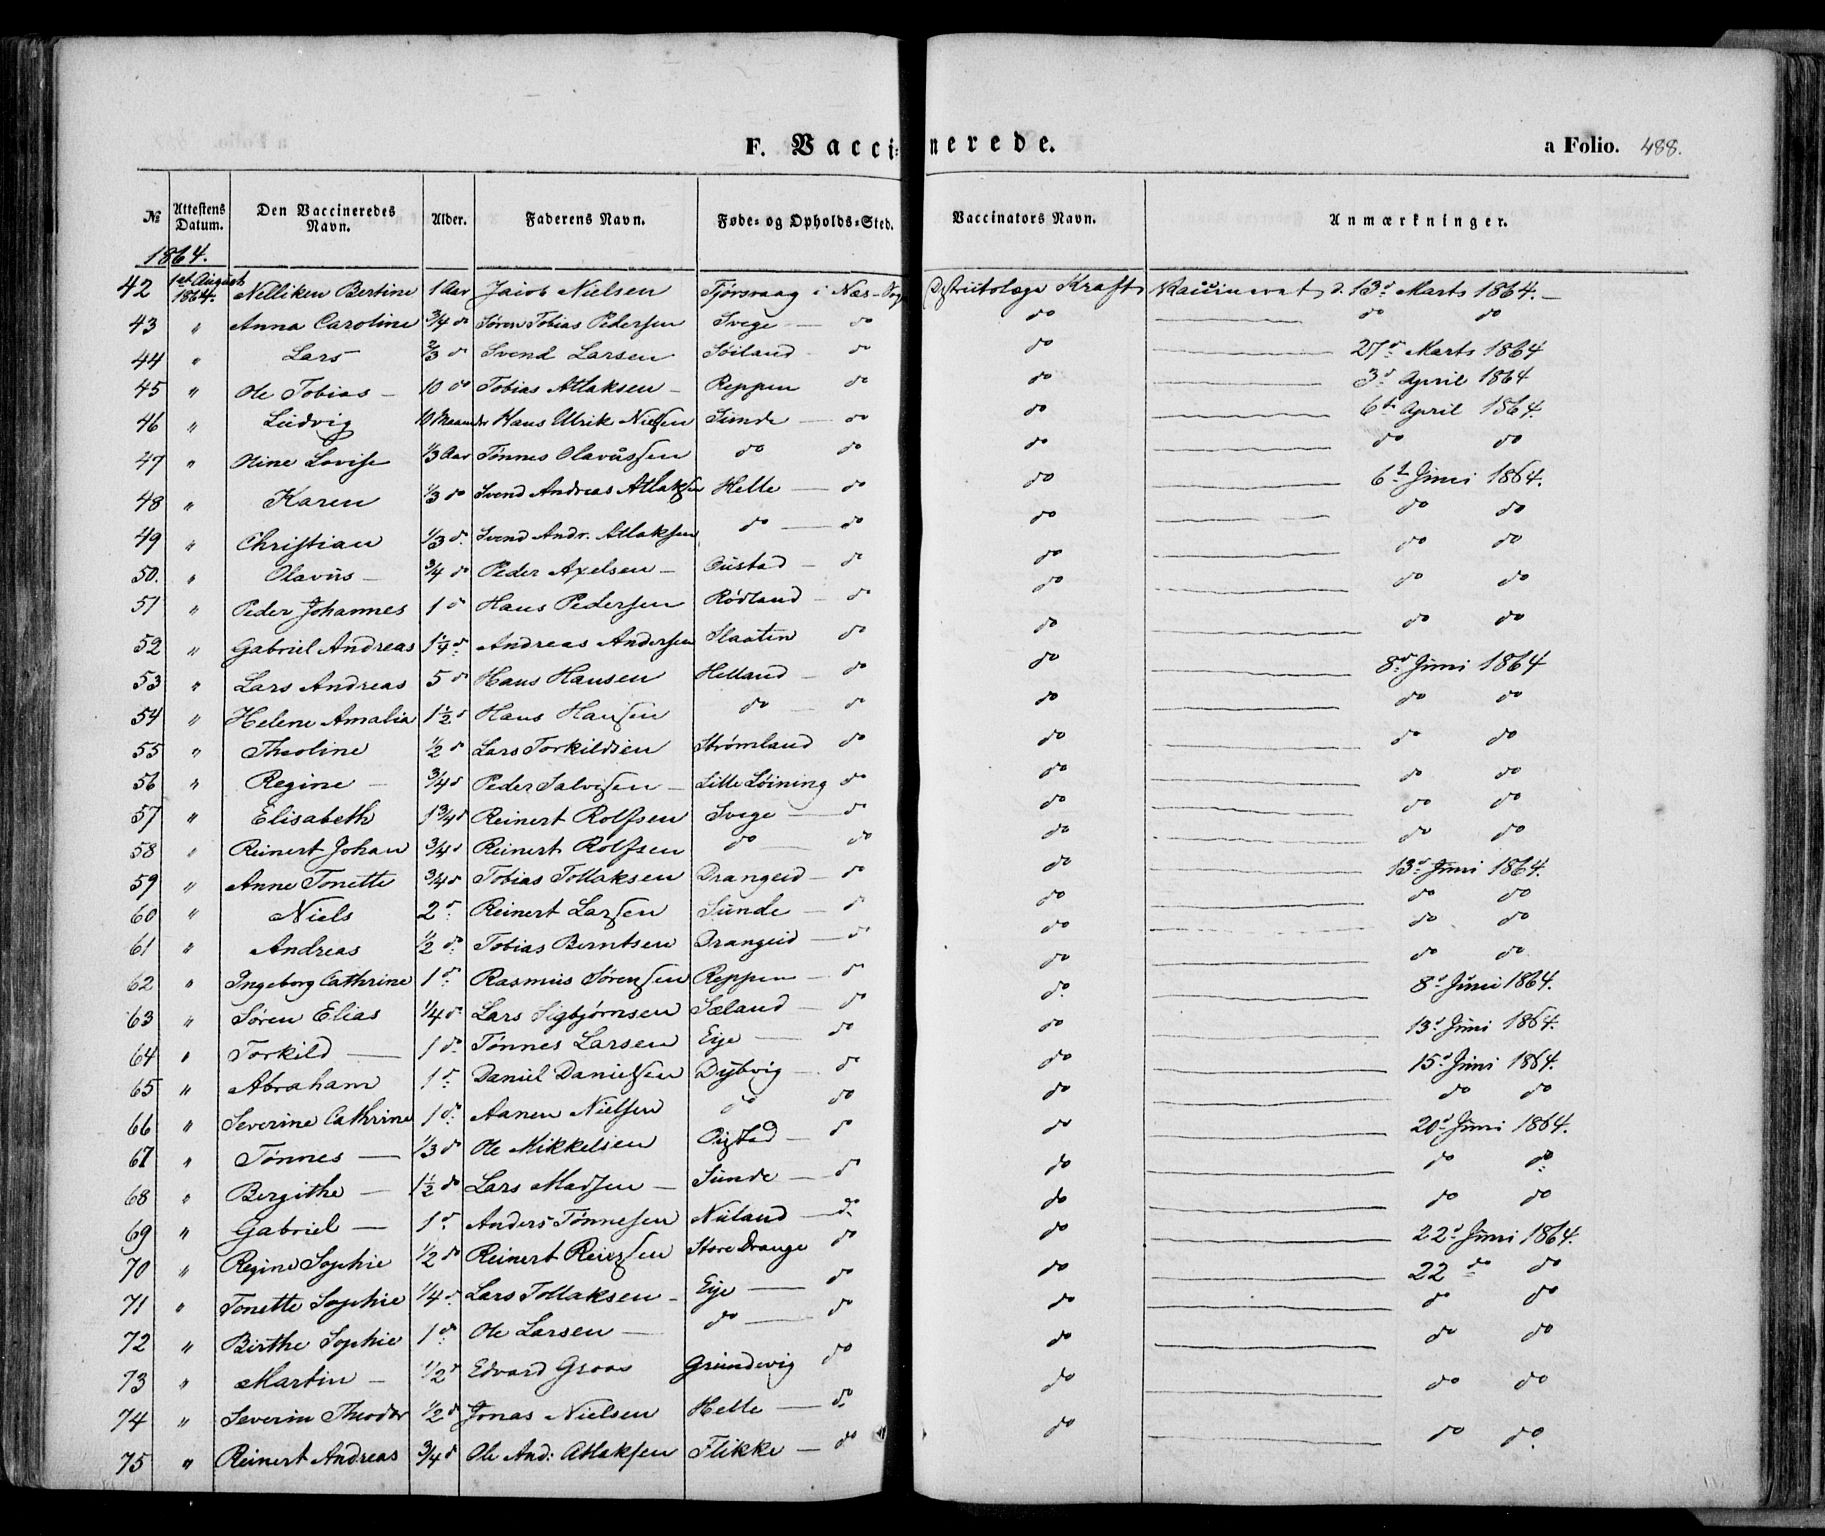 F. Vaccinerede. a Folio. 488.
№ Attestens Datum. Den Vaccineredes Navn. Alder. Faderens Navn. Føde- og Opholds-Sted. Vaccinators Navn. Anmærkninger.
1864.
42 1st August 1864. Nelliken Bertine 1 Aar Jacob Nielsen i Næs-Sogn Distriktslæge Kraft Vaccineret d. 13d Marts 1864.
43 " Anna Caroline 3/4 do Søren Tobias Pedersen Svege — do do — do do
44 " Lars 2/3 do Svend Larsen Søiland - do do — 27d Marts 1864
45 " Ole Tobias - 10 do Tobias Atlaksen - Reppen do do — 3d April 1864
46 " Ludvig 10 Maaneder Hans Ulrik Nielsen Sunde — do do — 6te April 1864.
47 " Oline Lovise 1/3 Aar Tønnes Olavussen do do do — do do
48 " Karen 1/3 do Svend Andreas Atlaksen Helle — do do — 6t Juni 1864.
49 " Christian 1/3 do. Svend Andr. Atlaksen do — do do — do do
50. " Olavus - 3/4 do Peder Axelsen - - do do — do do
51 " Peder Johannes 1 do Hans Pedersen Rødland - do do — do do
52 " Gabriel Andreas 1 1/4 do. Andreas Andersen Slaatten do do — do do
53 " Lars Andreas 5 do Hans Hansen Helland - do do — 8d Juni 1864
54 " Helene Amalia 1 1/2 do Hans Hansen do - do do — do do
55 " Theoline 1/2 do Lars Torkildsen Strømland do do — do do
56 " Regine - 3/4 do Peder Salvesen - Lille Løining do do — do do
57 " Elisabeth 1 3/4 do Reinert Rolfsen Svege — do do — do do
58 " Reinert Johan 3/4 do Reinert Rolfsen do — do do — do do
59 " Anne Tonette 3/4 do Tobias Tollaksen Drangeid - do do — 13d Juni 1864.
60 " Niels 2 do. Reinert Larsen Sunde — do do — do do
61 " Andreas 1/2 do. Tobias Berntsen Drangeid — do do — do do
62 " Ingeborg Cathrine 1 do. Rasmus Sørensen Reppen - do do — do do.
63 " Søren Elias 1/4 do. Lars Sigbjørnsen Sæland - do do. — 8d Juni 1864.
64 " Torkild — 1 do. Tønnes Larsen Eye — do do — 13d Juni 1864.
65 " Abraham 1 do. Daniel Danielsen Dybvig -. do do — 15d Juni 1864.
66 " Severine Cathrine 1 do. Aanen Nielsen do do do — do do
67 " Tønnes — 1/3 do Ole Mikkelsen - do do — 20d Juni 1864.
68 " Bergithe — 1 1/2 do Lars Madsen - Sunde — do do — do do
69 " Gabriel — 1 do. Anders Tønnesen Nuland — do. do — do do
70 " Regine Sophie 1/2 do Reinert Reiersen Store Drange do do — 22d Juni 1864.
71 " Tonette Sophie 1/4 do. Lars Tollaksen - Eye — do do — 22 do do
72 " Birthe Sophie 1 do Ole Larsen — do — do do — do do
73 " Martin - 1/2 do Edvard Groos Grundevig do do — do do
74 " Severin Theodor 1/2 do Jonas Nielsen Helle — do. do — do do
75 " Reinert Andreas 3/4 do Ole And: Atlaksen Flikke — do do — do do.